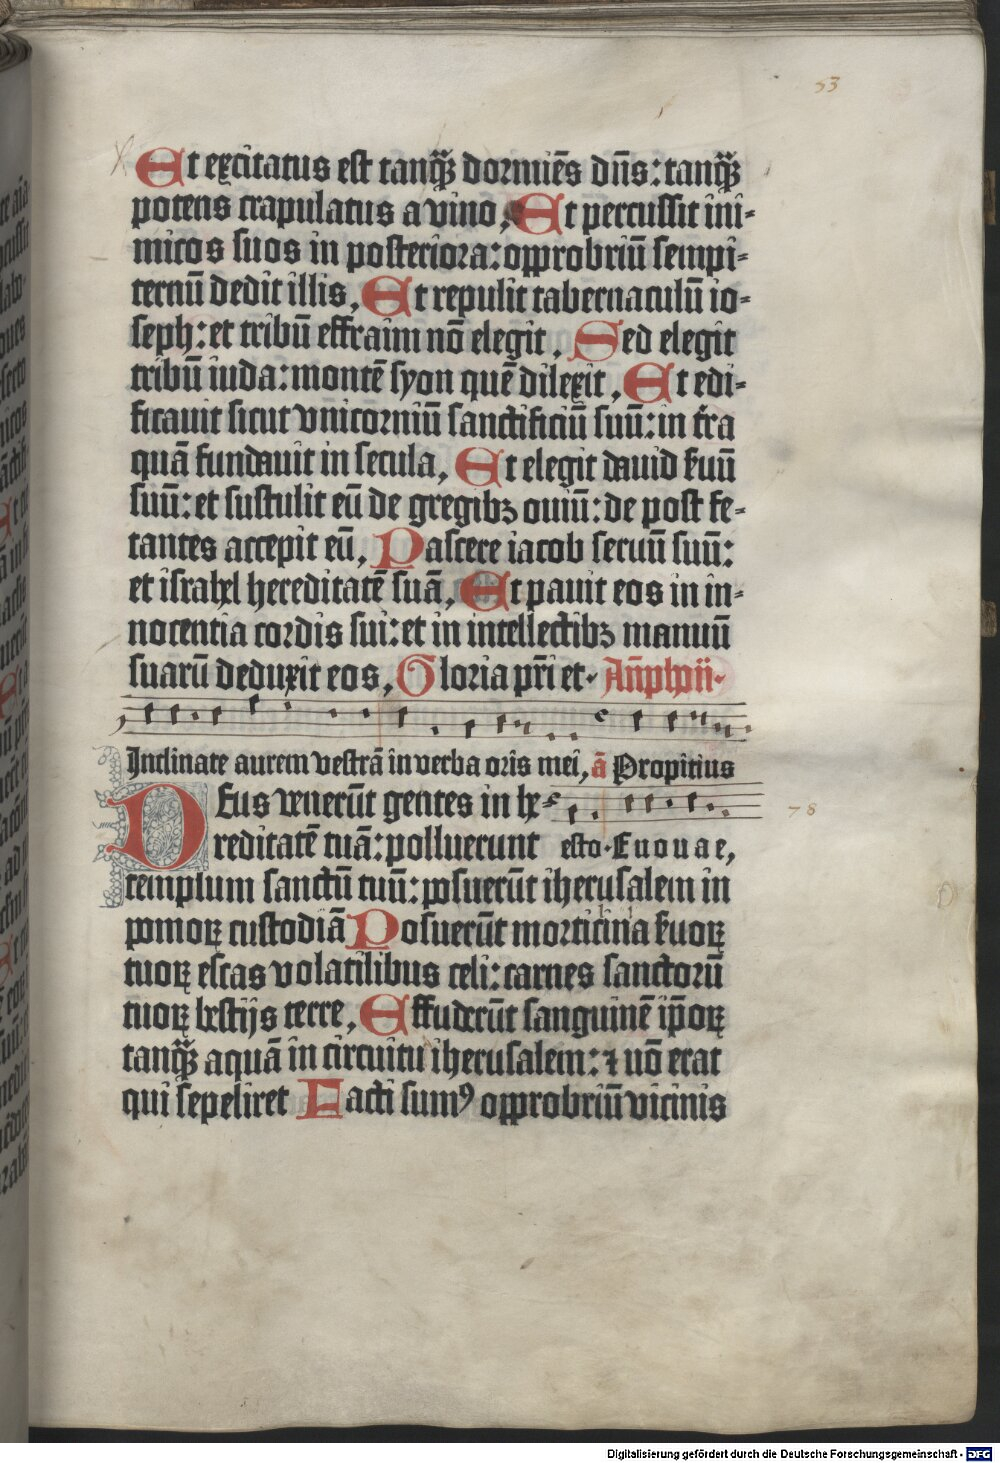 53
Et excitatus est tanq̄ꝫ dormiēs dn̄s: tanq̄ꝫ
potens crapulatus a vino, Et percussit ini-
micos suos in posteriora: opprobriū sempi-
ternū dedit illis, Et repulit tabernaculū io-
seph: et tribū effraim nō elegit, Sed elegit
tribū iuda: montē syon quē dilexit, Et edi-
ficauit sicut vnicorniū sanctificiū suū: in t̄ra
quā fundauit in secula, Et elegit dauid s̄uū
suū: et sustulit eū de gregibꝫ ouiū: de post fe-
tantes accepit eū, Pascere iacob seruū suū:
et israhel hereditatē suā, Et pauit eos in in-
nocentia cordis sui: et in intellectibꝫ manuū
suarū deduxit eos, Gloria pr̄i et· An̄ phōn·
Inclinate aurem vestrā in verba oris mei, ā Propitius
Deus venerūt gentes in he-
78
reditatē tuā: polluerunt esto· Euouae,
templum sanctū tuū: posuerūt iherusalem in
pomoꝝ custodiā Posuerūt morticina s̄uoꝝ
tuoꝝ escas volatilibus celi: carnes sanctorū
tuoꝝ bestijs terre, Effuderūt sanguinē ip̄oꝝ
tanq̄ꝫ aquā in circuitu iherusalem: ⁊ nō erat
qui sepeliret Facti sumꝰ opprobriū vicinis
Digitalisierung gefördert durch die Deutsche Forschungsgemeinschaft - DFG